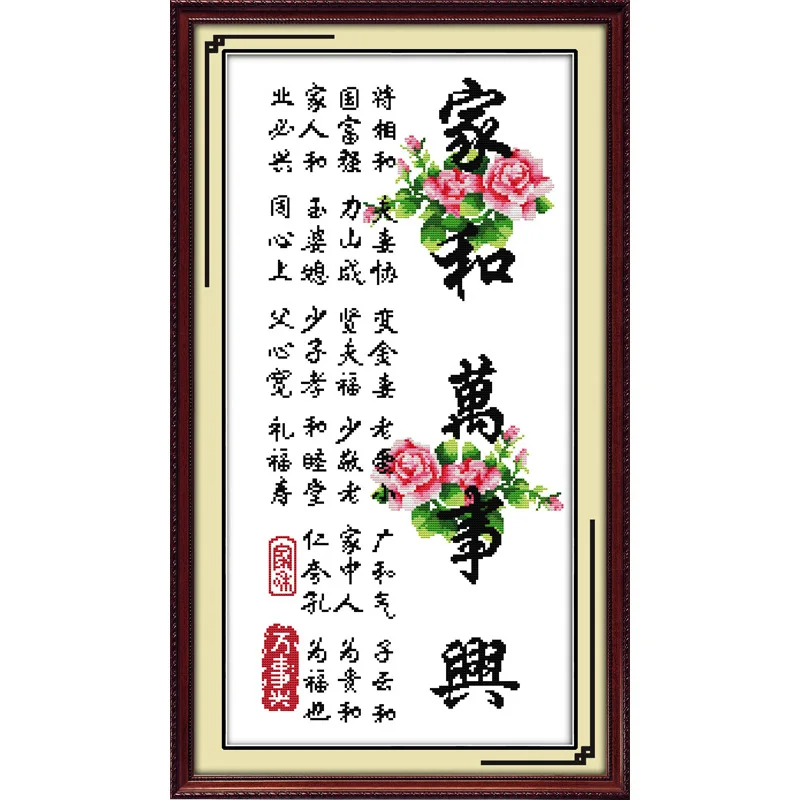 家和萬事興
将相和
国富强
家人和
业必兴
夫妻协
力山成
玉婆媳
同心上
变金妻
贤夫福
少子孝
父心宽
老要小
少敬老
和睦堂
礼福寿
广和气
家中人
仁夸孔
子云和
为贵和
为福也
万事兴